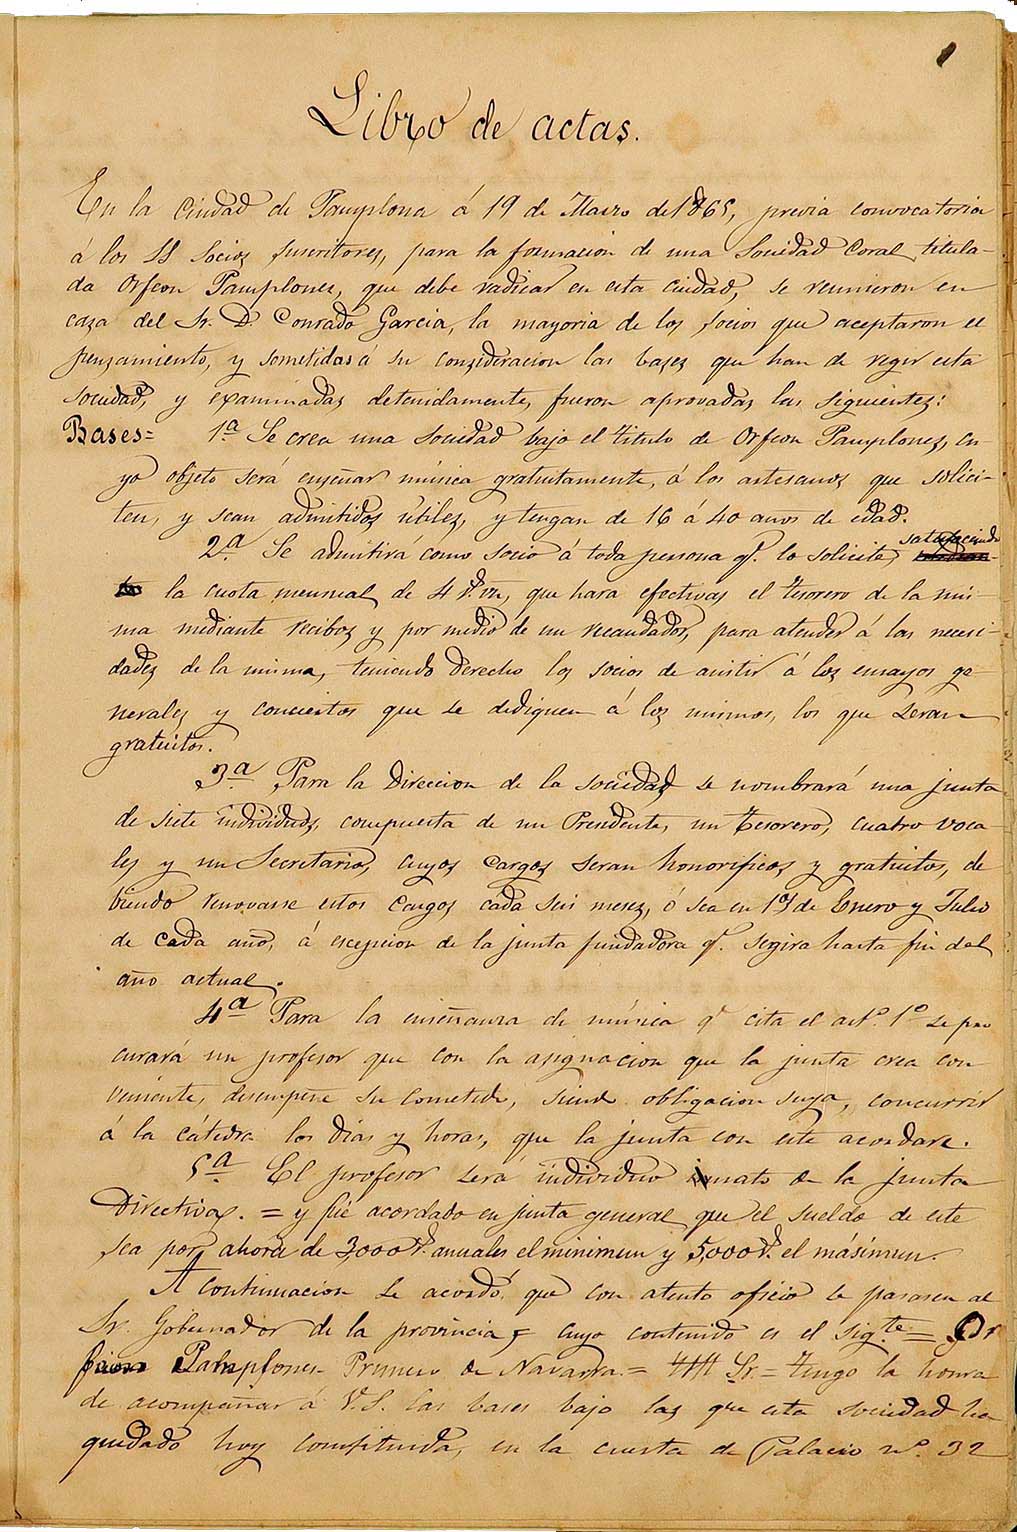 Libro de actas.
En la Ciudad de Pamplona á 19 de Marzo de 1865, previa convocatoria
á los SS Socios suscritores, para la formacion de una Sociedad Coral titula-
da Orfeon Pamplonez, que debe radicar en esta ciudad, se reunieron en
caza del Sr. D. Conrado Garcia, la mayoria de los socios que aceptaron el
penzamiento, y sometidas á su conzideracion las bazes que han de regir esta
sociedad, y examinadas detenidamente, fueron aprovadas las siguientes:
Bases= 1ª Se crea una sociedad bajo el titulo de Orfeon Pamplonez, cu-
yo objeto será enseñar música gratuitamente, á los artesanos que solici-
ten, y sean admitidos útiles, y tengan de 16 á 40 anos de edad.
2ª Se admitirá cómo socio á toda persona q.e lo solicite, satisfaciendo
la cuota mensual de 4 r.s vn, que hara efectivas el tesorero de la mis-
ma mediante recibos y por medio de un recaudador, para atender á las necesi-
dades de la misma, teniendo derecho los socios de asistir á los ensayos ge-
nerales y conciertos que se dediquen á los mismos, los que seran
gratuitos.
3ª Para la Direccion de la sociedad se nombrará una junta
de siete individuos, compuesta de un Presidente, un Tesorero, cuatro voca-
les y un Secretario, cuyos cargos seran honorificos y gratuitos, de
biendo renovarse estos cargos cada seis meses, ó sea en 1º de Enero y Julio
de cada año, á escepcion de la junta fundadora q.e segira hasta fin del
año actual.
4ª Para la enseñanza de música q.e cita el art.º 1º se pro
curará un profesor que con la asignacion que la junta crea con
veniente, desempeñe su cometido, siendo obligacion suya, concurrir
á la cátedra los dias y horas, que la junta con este acordare.
5ª El profesor será individuo innato de la junta
Directiva. = y fue acordado en junta general que el sueldo de este
sea por ahora de 3,000 r.s anuales el minimun y 5,000 r.s el másimun.
A continuacion se acordó, que con atento oficio se pasasen al
Sr. Gobernador de la provincia, cuyo contenido es el sig.te = Or
feon Pamplones Primero de Navarra. = Sr. = Tengo la honra
de acompañar á V.S. las bases bajo las que esta sociedad ha
quedado hoy constituida, en la cuesta de Palacio nº. 32